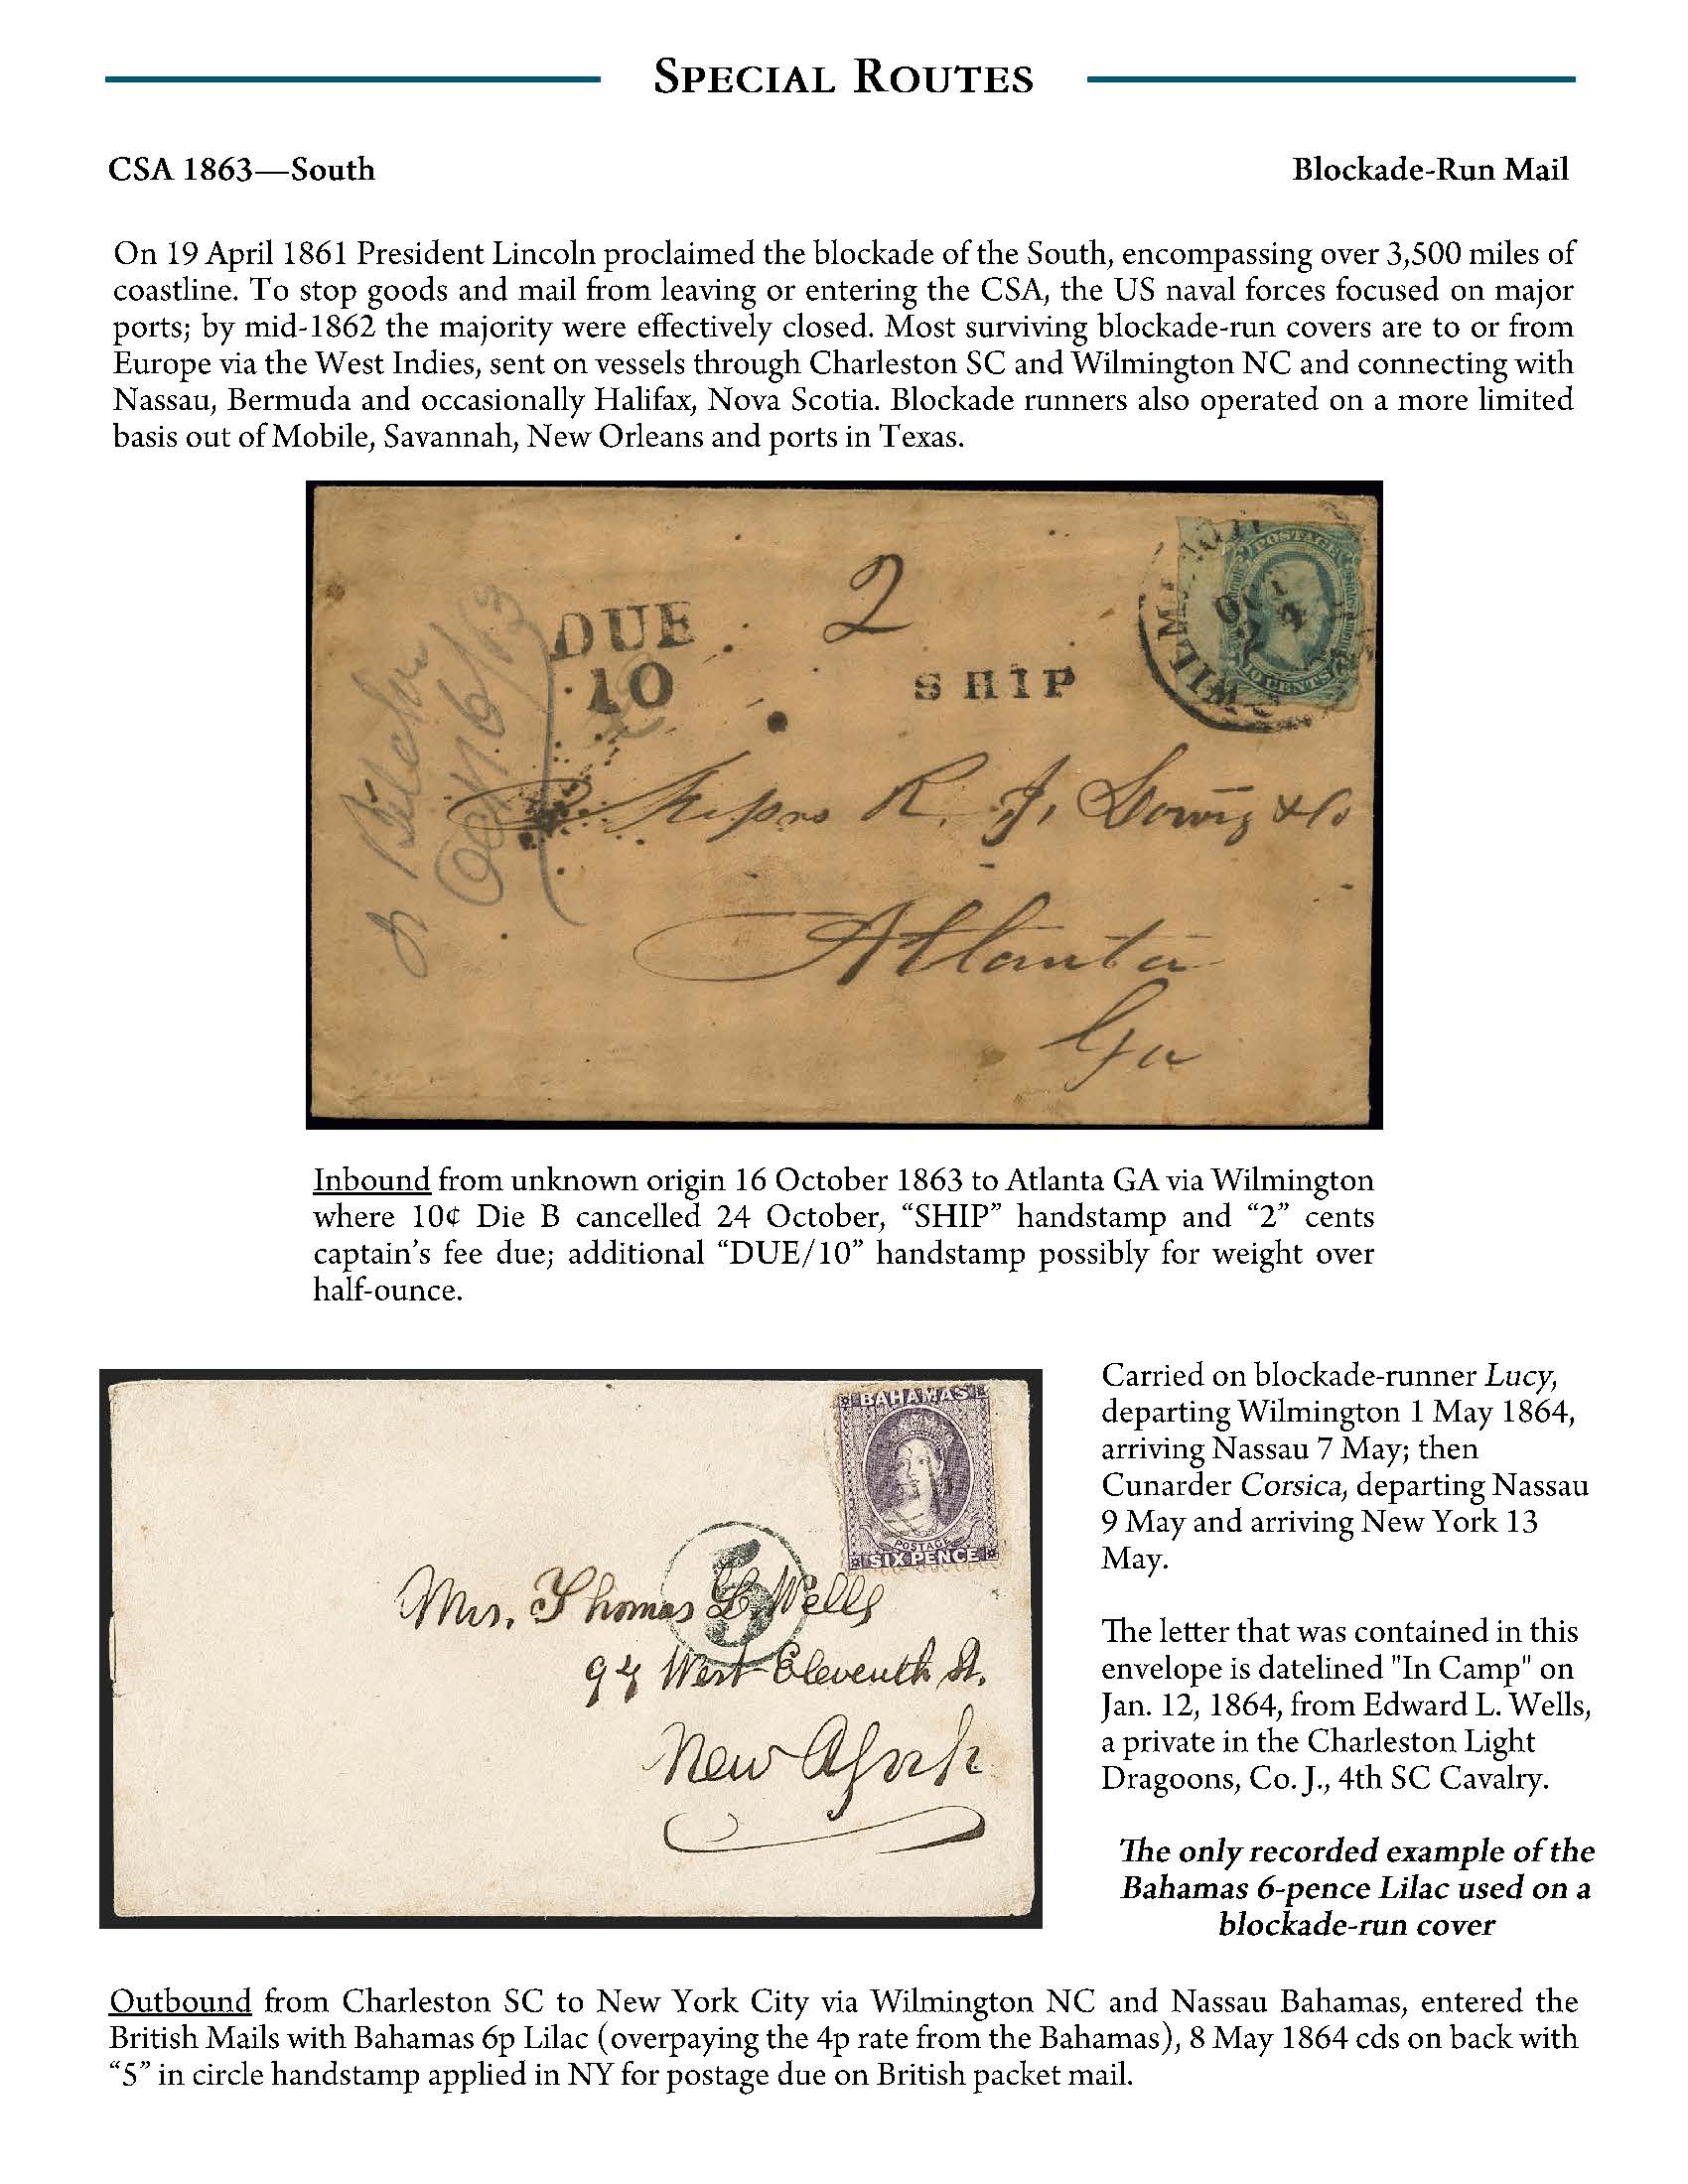 SPECIAL ROUTES
CSA 1863—South
Blockade-Run Mail
On 19 April 1861 President Lincoln proclaimed the blockade of the South, encompassing over 3,500 miles of
coastline. To stop goods and mail from leaving or entering the CSA, the US naval forces focused on major
ports; by mid-1862 the majority were effectively closed. Most surviving blockade-run covers are to or from
Europe via the West Indies, sent on vessels through Charleston SC and Wilmington NC and connecting with
Nassau, Bermuda and occasionally Halifax, Nova Scotia. Blockade runners also operated on a more limited
basis out of Mobile, Savannah, New Orleans and ports in Texas.
POSTAGE
CENTS
OCT
24
WILM
2
DUE
10
SHIP
Oct 16/63
R. J. Lowry & Co
Atlanta
Ga
Inbound from unknown origin 16 October 1863 to Atlanta GA via Wilmington
where 10¢ Die B cancelled 24 October, “SHIP” handstamp and “2” cents
captain’s fee due; additional “DUE/10” handstamp possibly for weight over
half-ounce.
BAHAMAS
POSTAGE
SIX PENCE
5
Mrs. Thomas L. Wells
94 West Eleventh St.
New York
Carried on blockade-runner Lucy,
departing Wilmington 1 May 1864,
arriving Nassau 7 May; then
Cunarder Corsica, departing Nassau
9 May and arriving New York 13
May.
The letter that was contained in this
envelope is datelined "In Camp" on
Jan. 12, 1864, from Edward L. Wells,
a private in the Charleston Light
Dragoons, Co. J., 4th SC Cavalry.
The only recorded example of the
Bahamas 6-pence Lilac used on a
blockade-run cover
Outbound from Charleston SC to New York City via Wilmington NC and Nassau Bahamas, entered the
British Mails with Bahamas 6p Lilac (overpaying the 4p rate from the Bahamas), 8 May 1864 cds on back with
“5” in circle handstamp applied in NY for postage due on British packet mail.